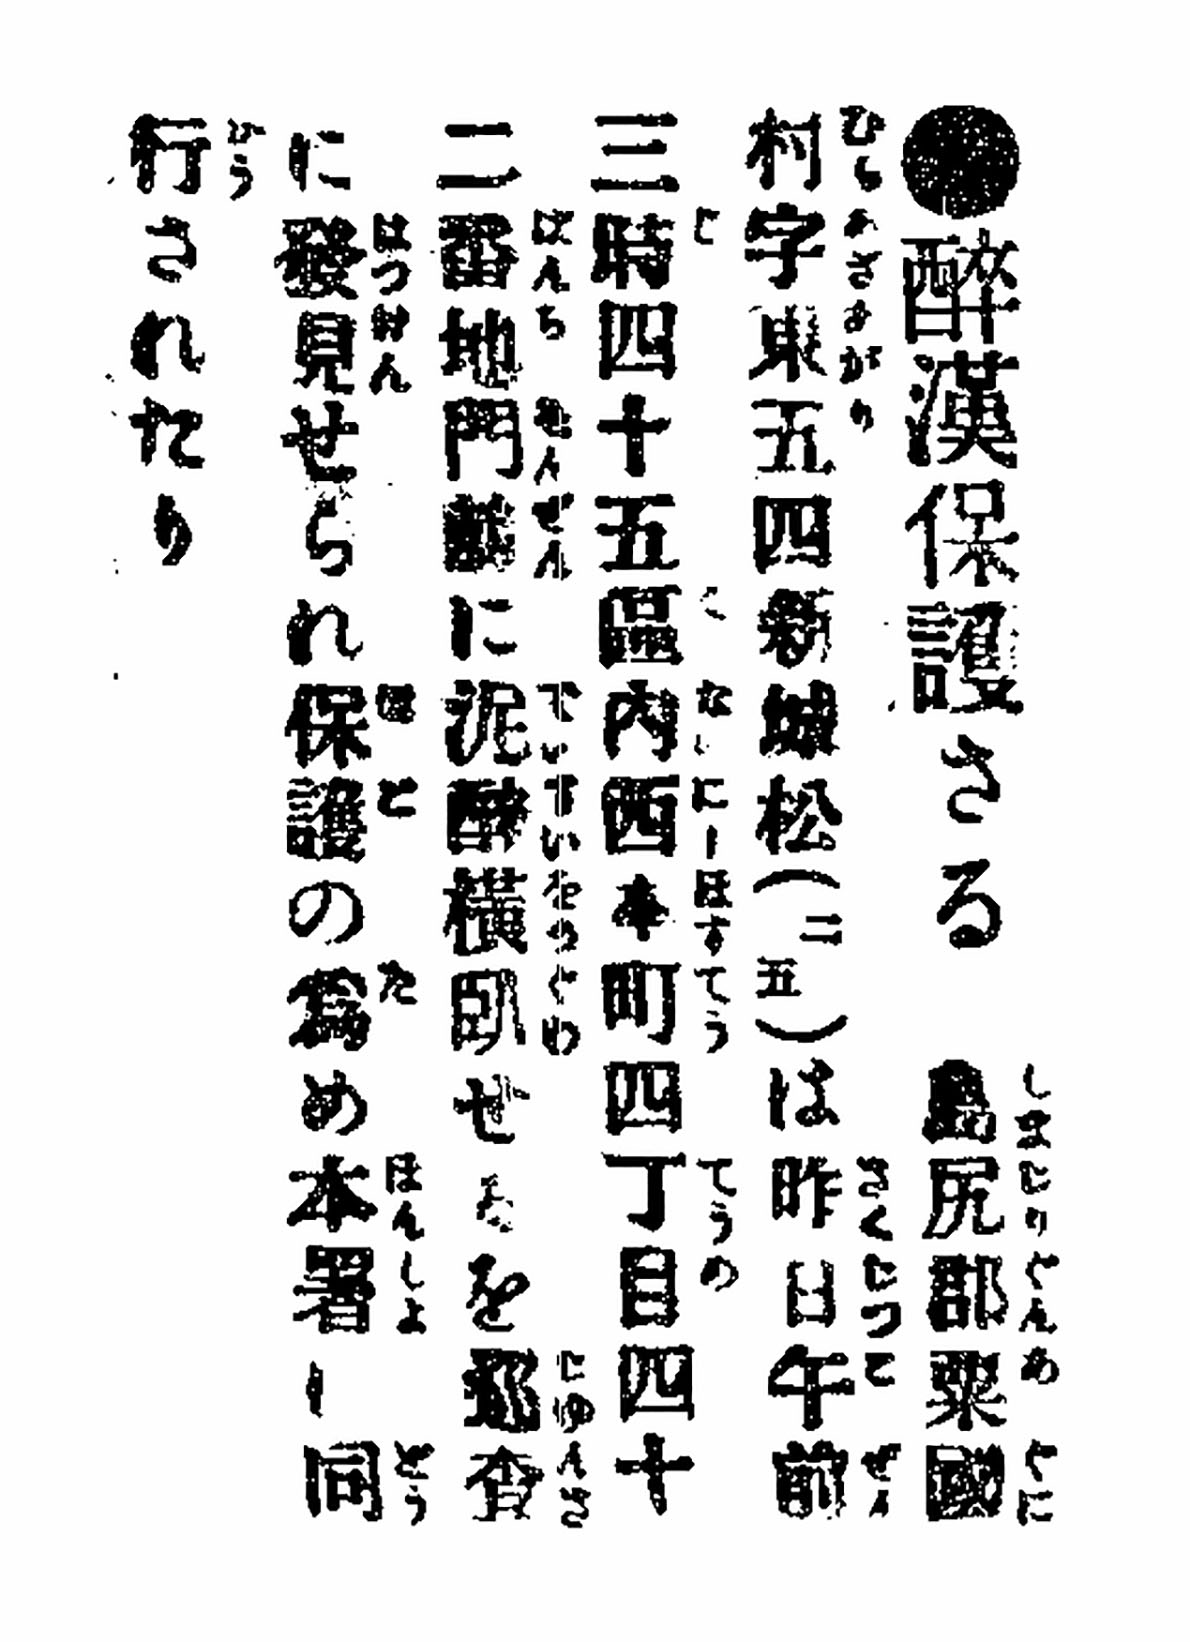 ●酔漢保護さる 島尻郡粟國
村字東五四新城松(二五)は昨日午前
三時四十五區内西本町四丁目四十
二番地門前に泥酔横臥せるを巡査
に發見せられ保護の為め本署に同
行されたり